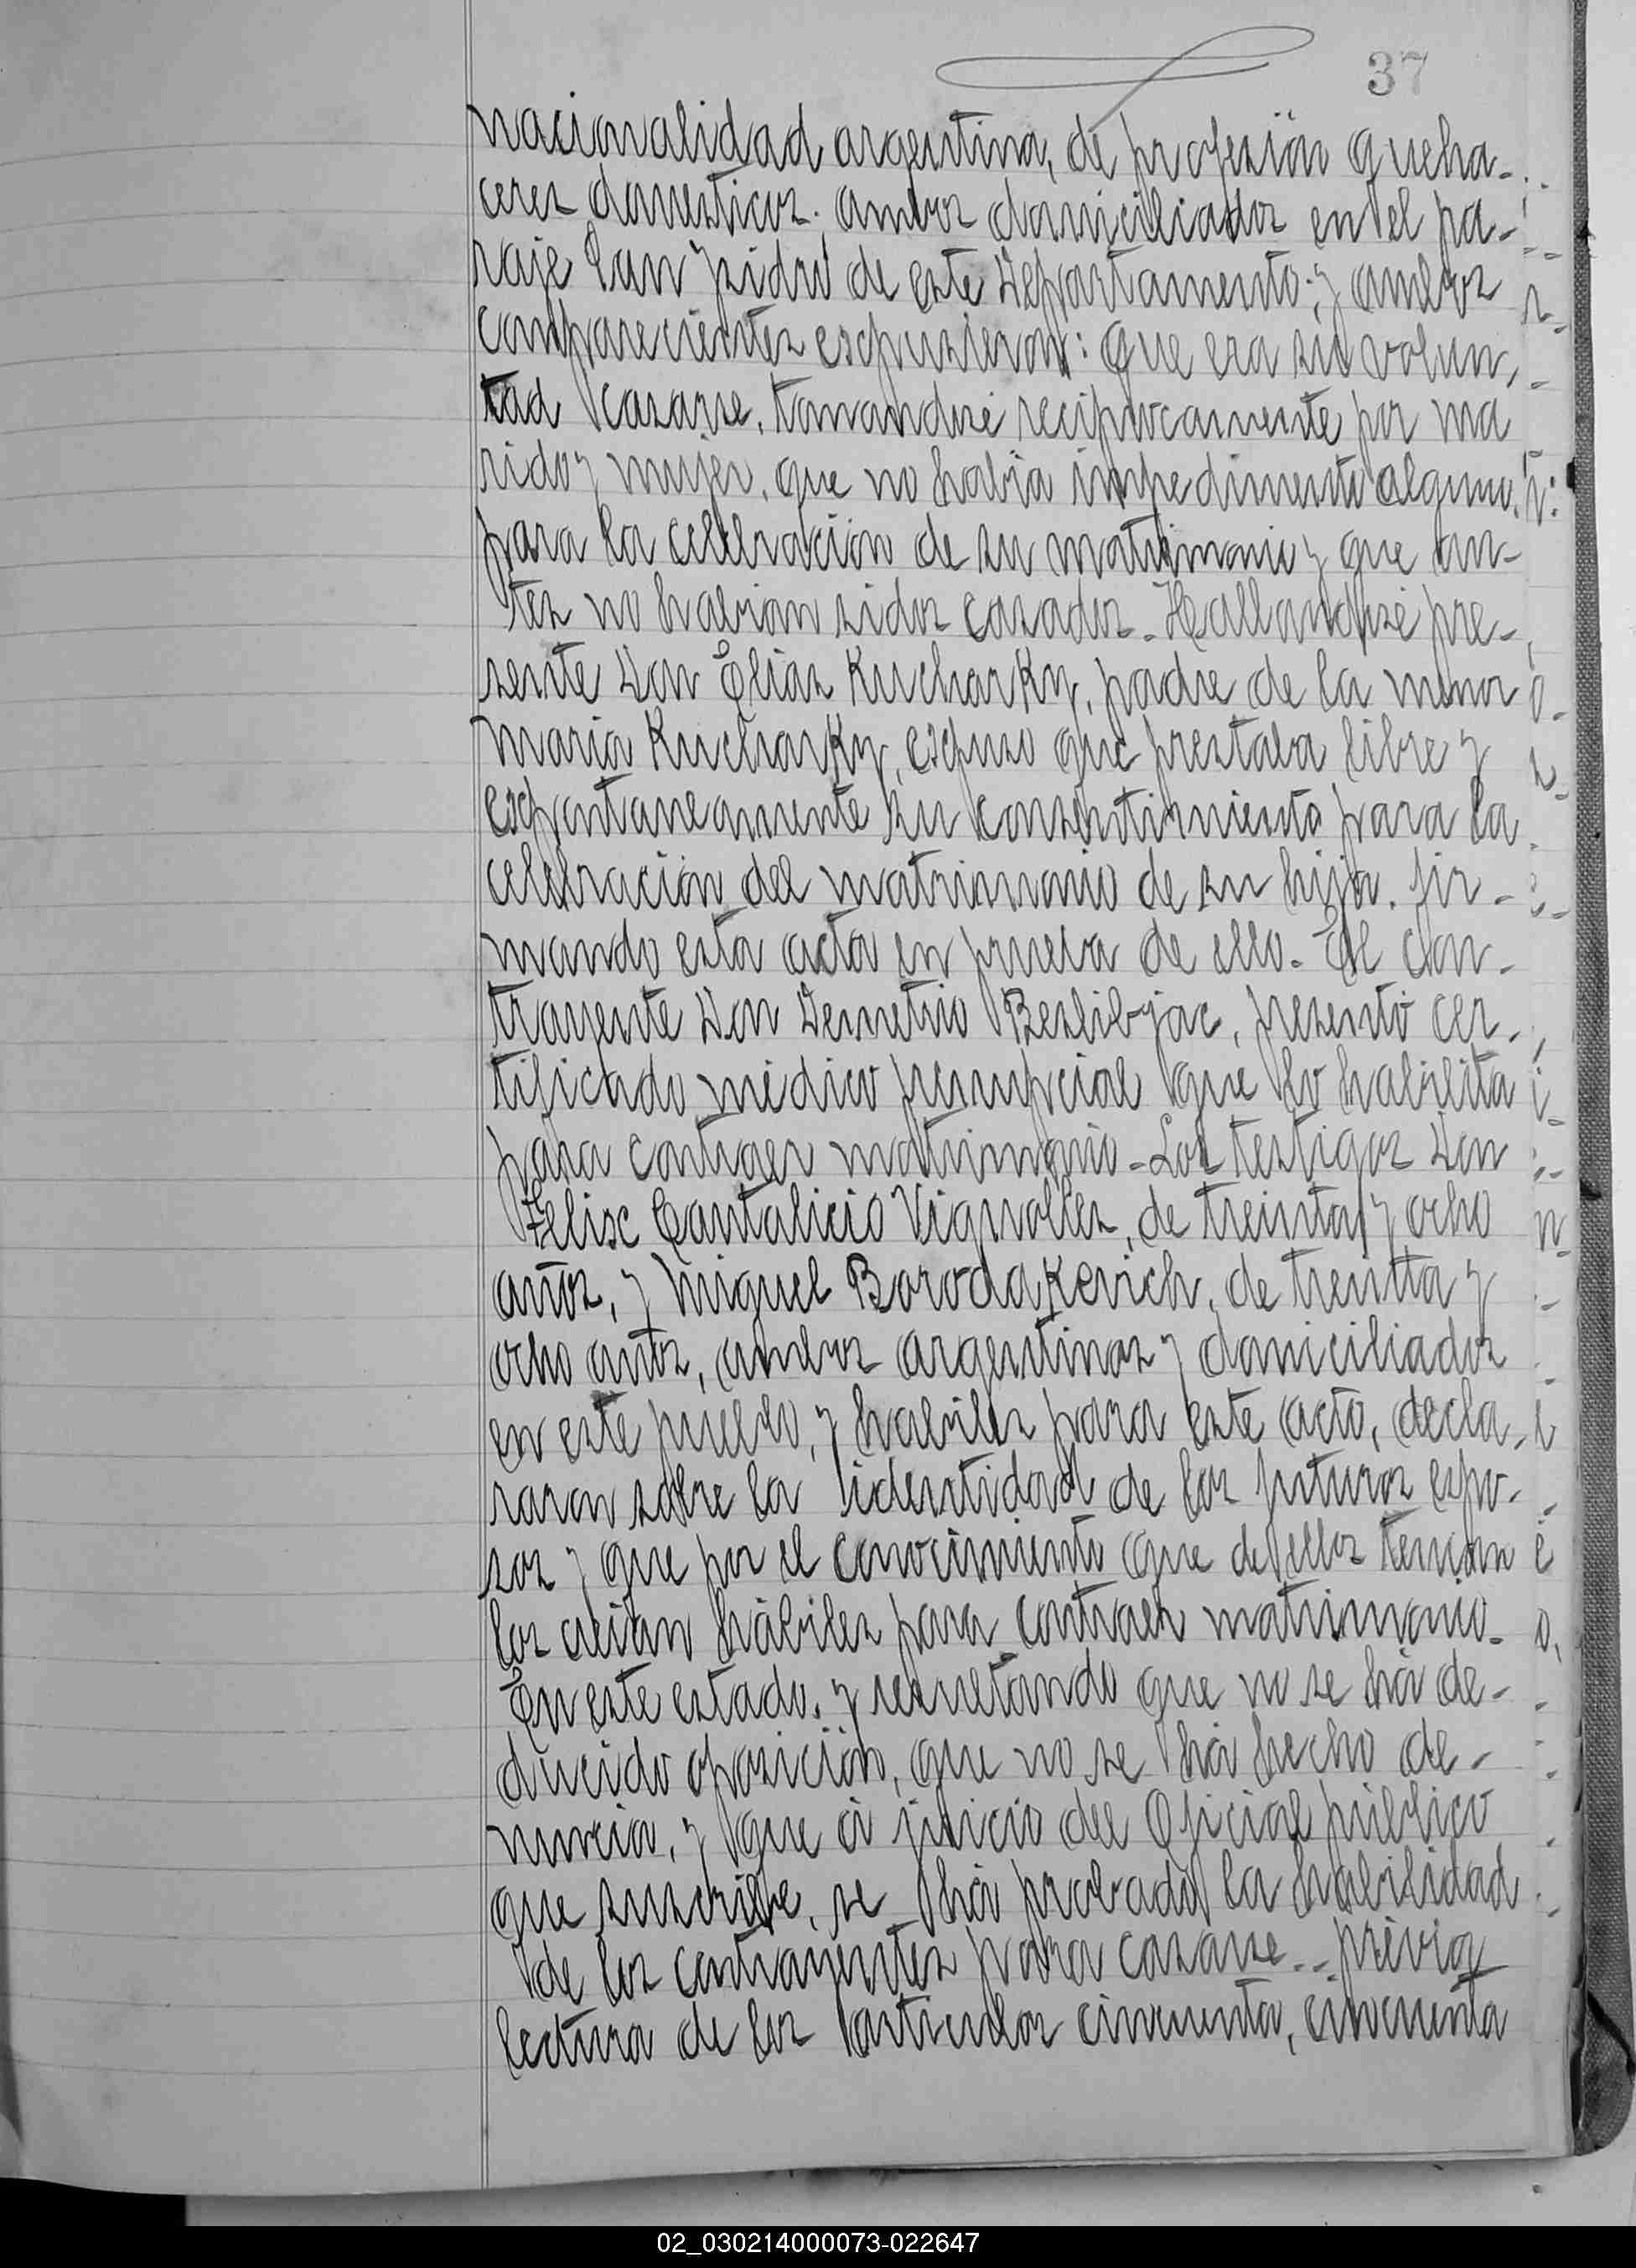 37
nacionalidad argentina, de profesión queha-
ceres domesticos. ambos domiciliados en el pa-
raje San Ysidro de este Departamento; y ambos
comparecientes expusieron: Que era su volun,
tad casarse, tomandose reciprocamente por ma
rido y mujer, que no habia impedimento alguno,
para la celebración de su matrimonio y que an-
tes no habian sidos casados. Hallandose pre-
sente Don Elias Kucharky, padre de la menor
Maria Kucharky, expuso que prestaba libre y
expontaneamente su consentimiento para la
celebración del matrimonio de su hija. fir-
mando esta acta en prueba de ello. El con-
trayente Don Demetrio Beslibjac, presentó cer.
tificado médico prenupcial que lo habilita
para contraer matrimonio - Los testigos Don
Felix Cantalicio Vignolles, de treinta y ocho
años, y Miguel Borodakevich, de treinta y
ocho años, ambos argentinos y domiciliados
en este pueblo, y habiles para este acto, decla,
raron sobre la identidad de los futuros espo-
sos y que por el conocimiento que de ellos tenian
los creian hábiles para contraer matrimonio.
En este estado, y resultando que no se há de-
ducido oposición, que no se há hecho de-
nuncia, y que á juicio del Oficial público
que suscribe, se há probado la habilidad
de los contrayentes para casarse.- previa
lectura de los articulos cincuenta, cincuenta
02_030214000073-022647